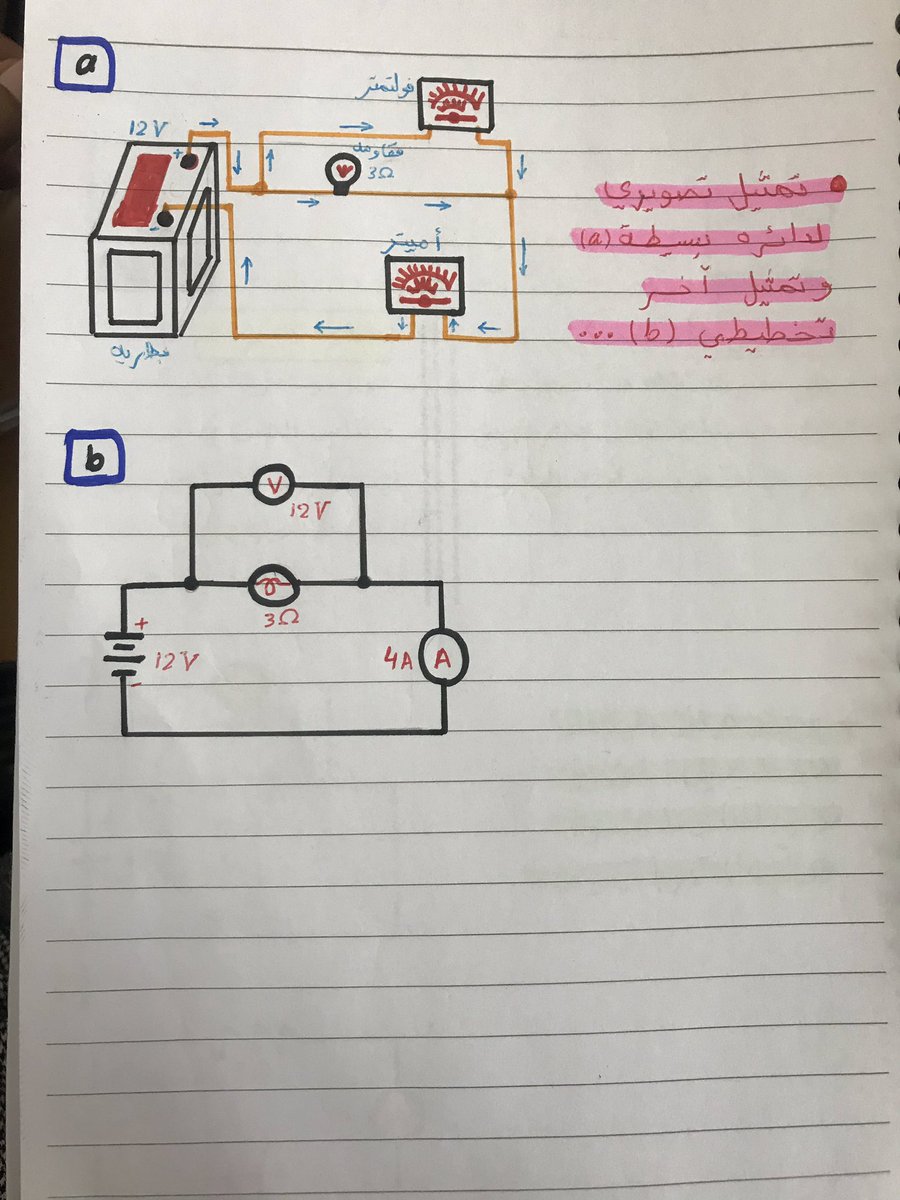 a
فولتمتر
12V
+
مقاومه
3Ω
-
أميتر
بطاريه
تمثيل تصويري
لدائره بسيطة (a)
وتمثيل آخر
تخطيطي (b) ...
b
V
12V
3Ω
+
12V
-
4A
A